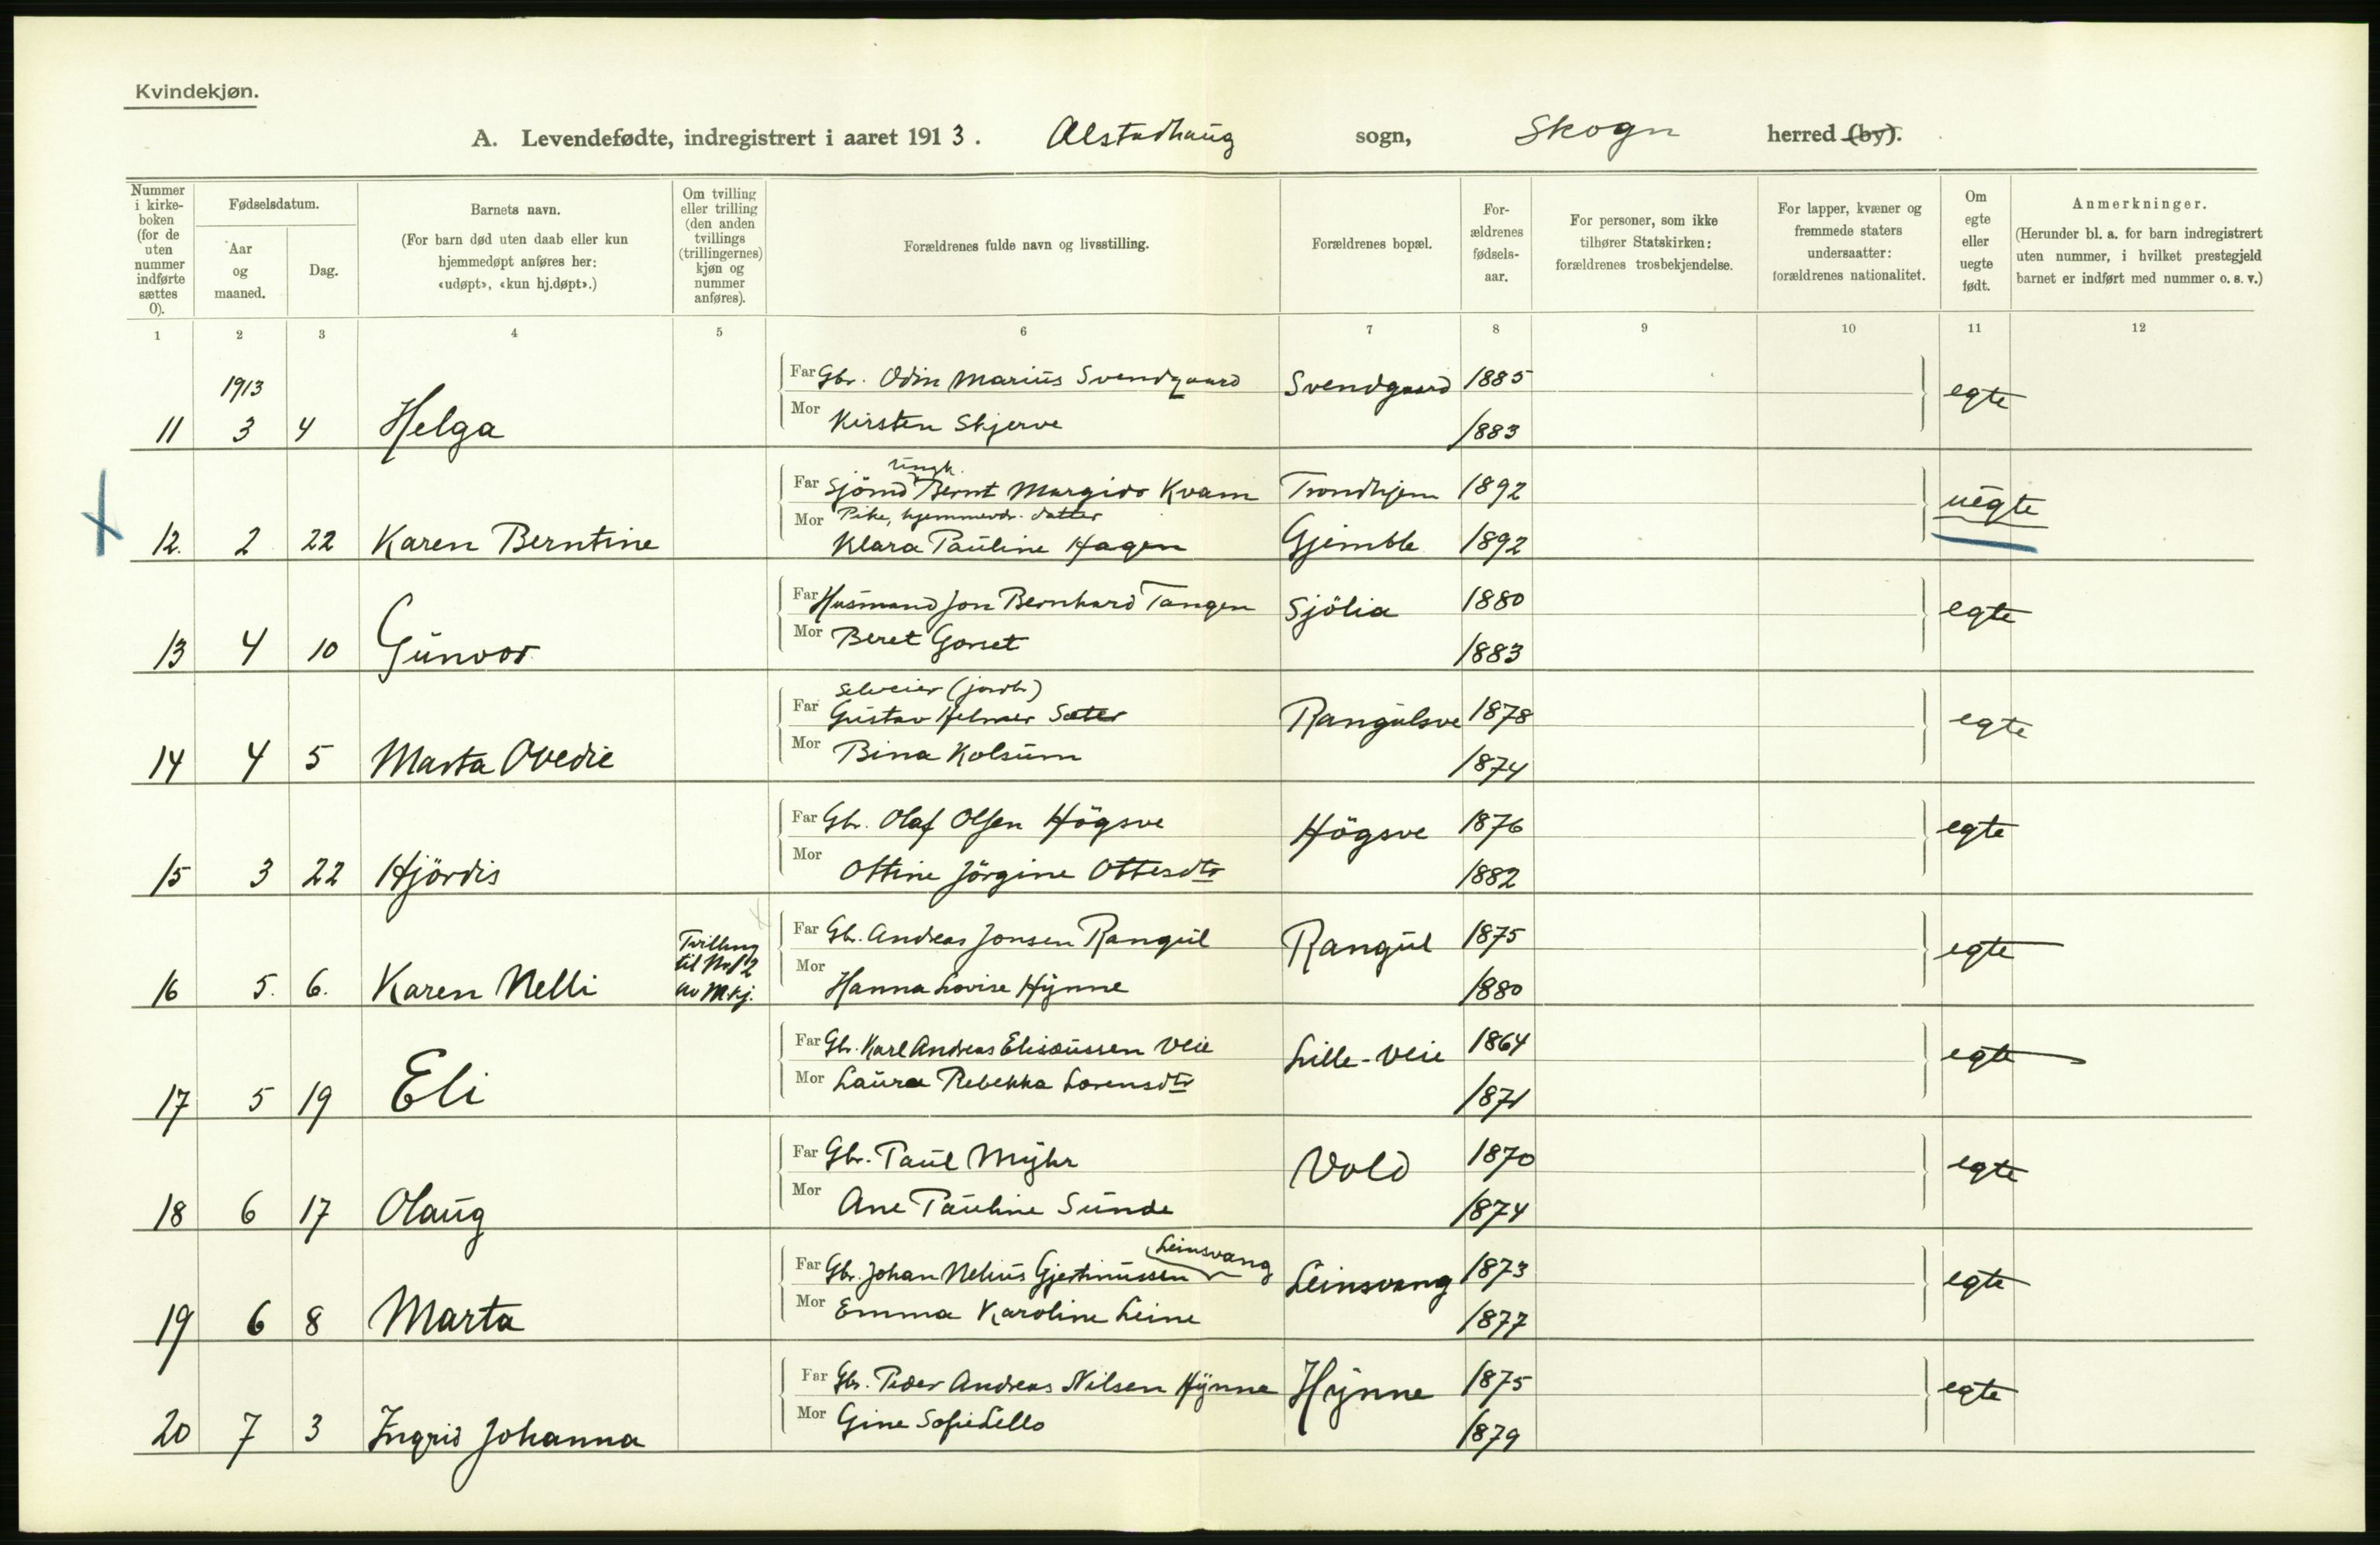 Kvindekjøn.
A. Levendefødte, indregistrert i aaret 1913. Alstadhaug sogn, Skogn herred (by).
Nummer i kirke- boken (for de uten nummer indførte sættes 0).
Fødselsdatum.
Aar og maaned.
Dag.
Barnets navn.
(For barn død uten daab eller kun hjemmedøpt anføres her: «udøpt», «kun hj.døpt».)
Om tvilling eller trilling (den anden tvillings (trillingernes) kjøn og nummer anføres).
Forældrenes fulde navn og livsstilling.
Forældrenes bopæl.
For- ældrenes fødsels- aar.
For personer, som ikke tilhører Statskirken: forældrenes trosbekjendelse.
For lapper, kvæner og fremmede staters undersaatter: forældrenes nationalitet.
Om egte eller uegte født.
Anmerkninger.
(Herunder bl. a. for barn indregistrert uten nummer, i hvilket prestegjeld barnet er indført med nummer o. s. v.)
1 2 3 4 5 6 7 8 9 10 11 12
1913
Far Gbr. Odin Marius Svendgaard Svendgaard 1885 egte
11 3 4 Helga
Mor Kirsten Skjerve 1883
ungk.
Far Sjömd Bernt Margido Kvam Trondhjem 1892 uegte
Pike, hjemmevær. datter
12. 2 22 Karen Berntine
Mor Klara Pauline Hagen Gjemble 1892
Far Husmand Jon Bernhard Tangen Sjölia 1880 egte
13 4 10 Gunvor
Mor Beret Gorset 1883
Selveier (jordb)
Far Gustav Helmer Sæter Rangulsve 1878 egte
14 4 5 Marta Ovedie
Mor Bina Kolsum 1874
Far Gbr. Olaf Olsen Högsve Högsve 1876 egte
15 3 22 Hjördis
Mor Ottine Jörgine Ottesdtr 1882
Far Gbr. Andreas Jonsen Rangul Rangul 1875 egte
Tvilling til No 12 av M.kj.
16 5. 6. Karen Nelli
Mor Hanna Lovise Hynne 1880
Far Gbr. Karl Andreas Elisæussen Veie Lille-Veie 1864 egte
17 5 19 Eli
Mor Laura Rebekka Lorensdtr 1871
Far Gbr. Paul Myhr Vold 1870 egte
18 6 17 Olaug
Mor Ane Pauline Sunde 1874
Leinsvang
Far Gbr. Johan Nelius Gjertinussen Leinsvang 1873 egte
19 6 8 Marta
Mor Emma Karoline Leine 1877
Far Gbr. Peder Andreas Nilsen Hynne Hynne 1875 egte
20 7 3 Ingrid Johanna
Mor Gine Sofie Lello 1879